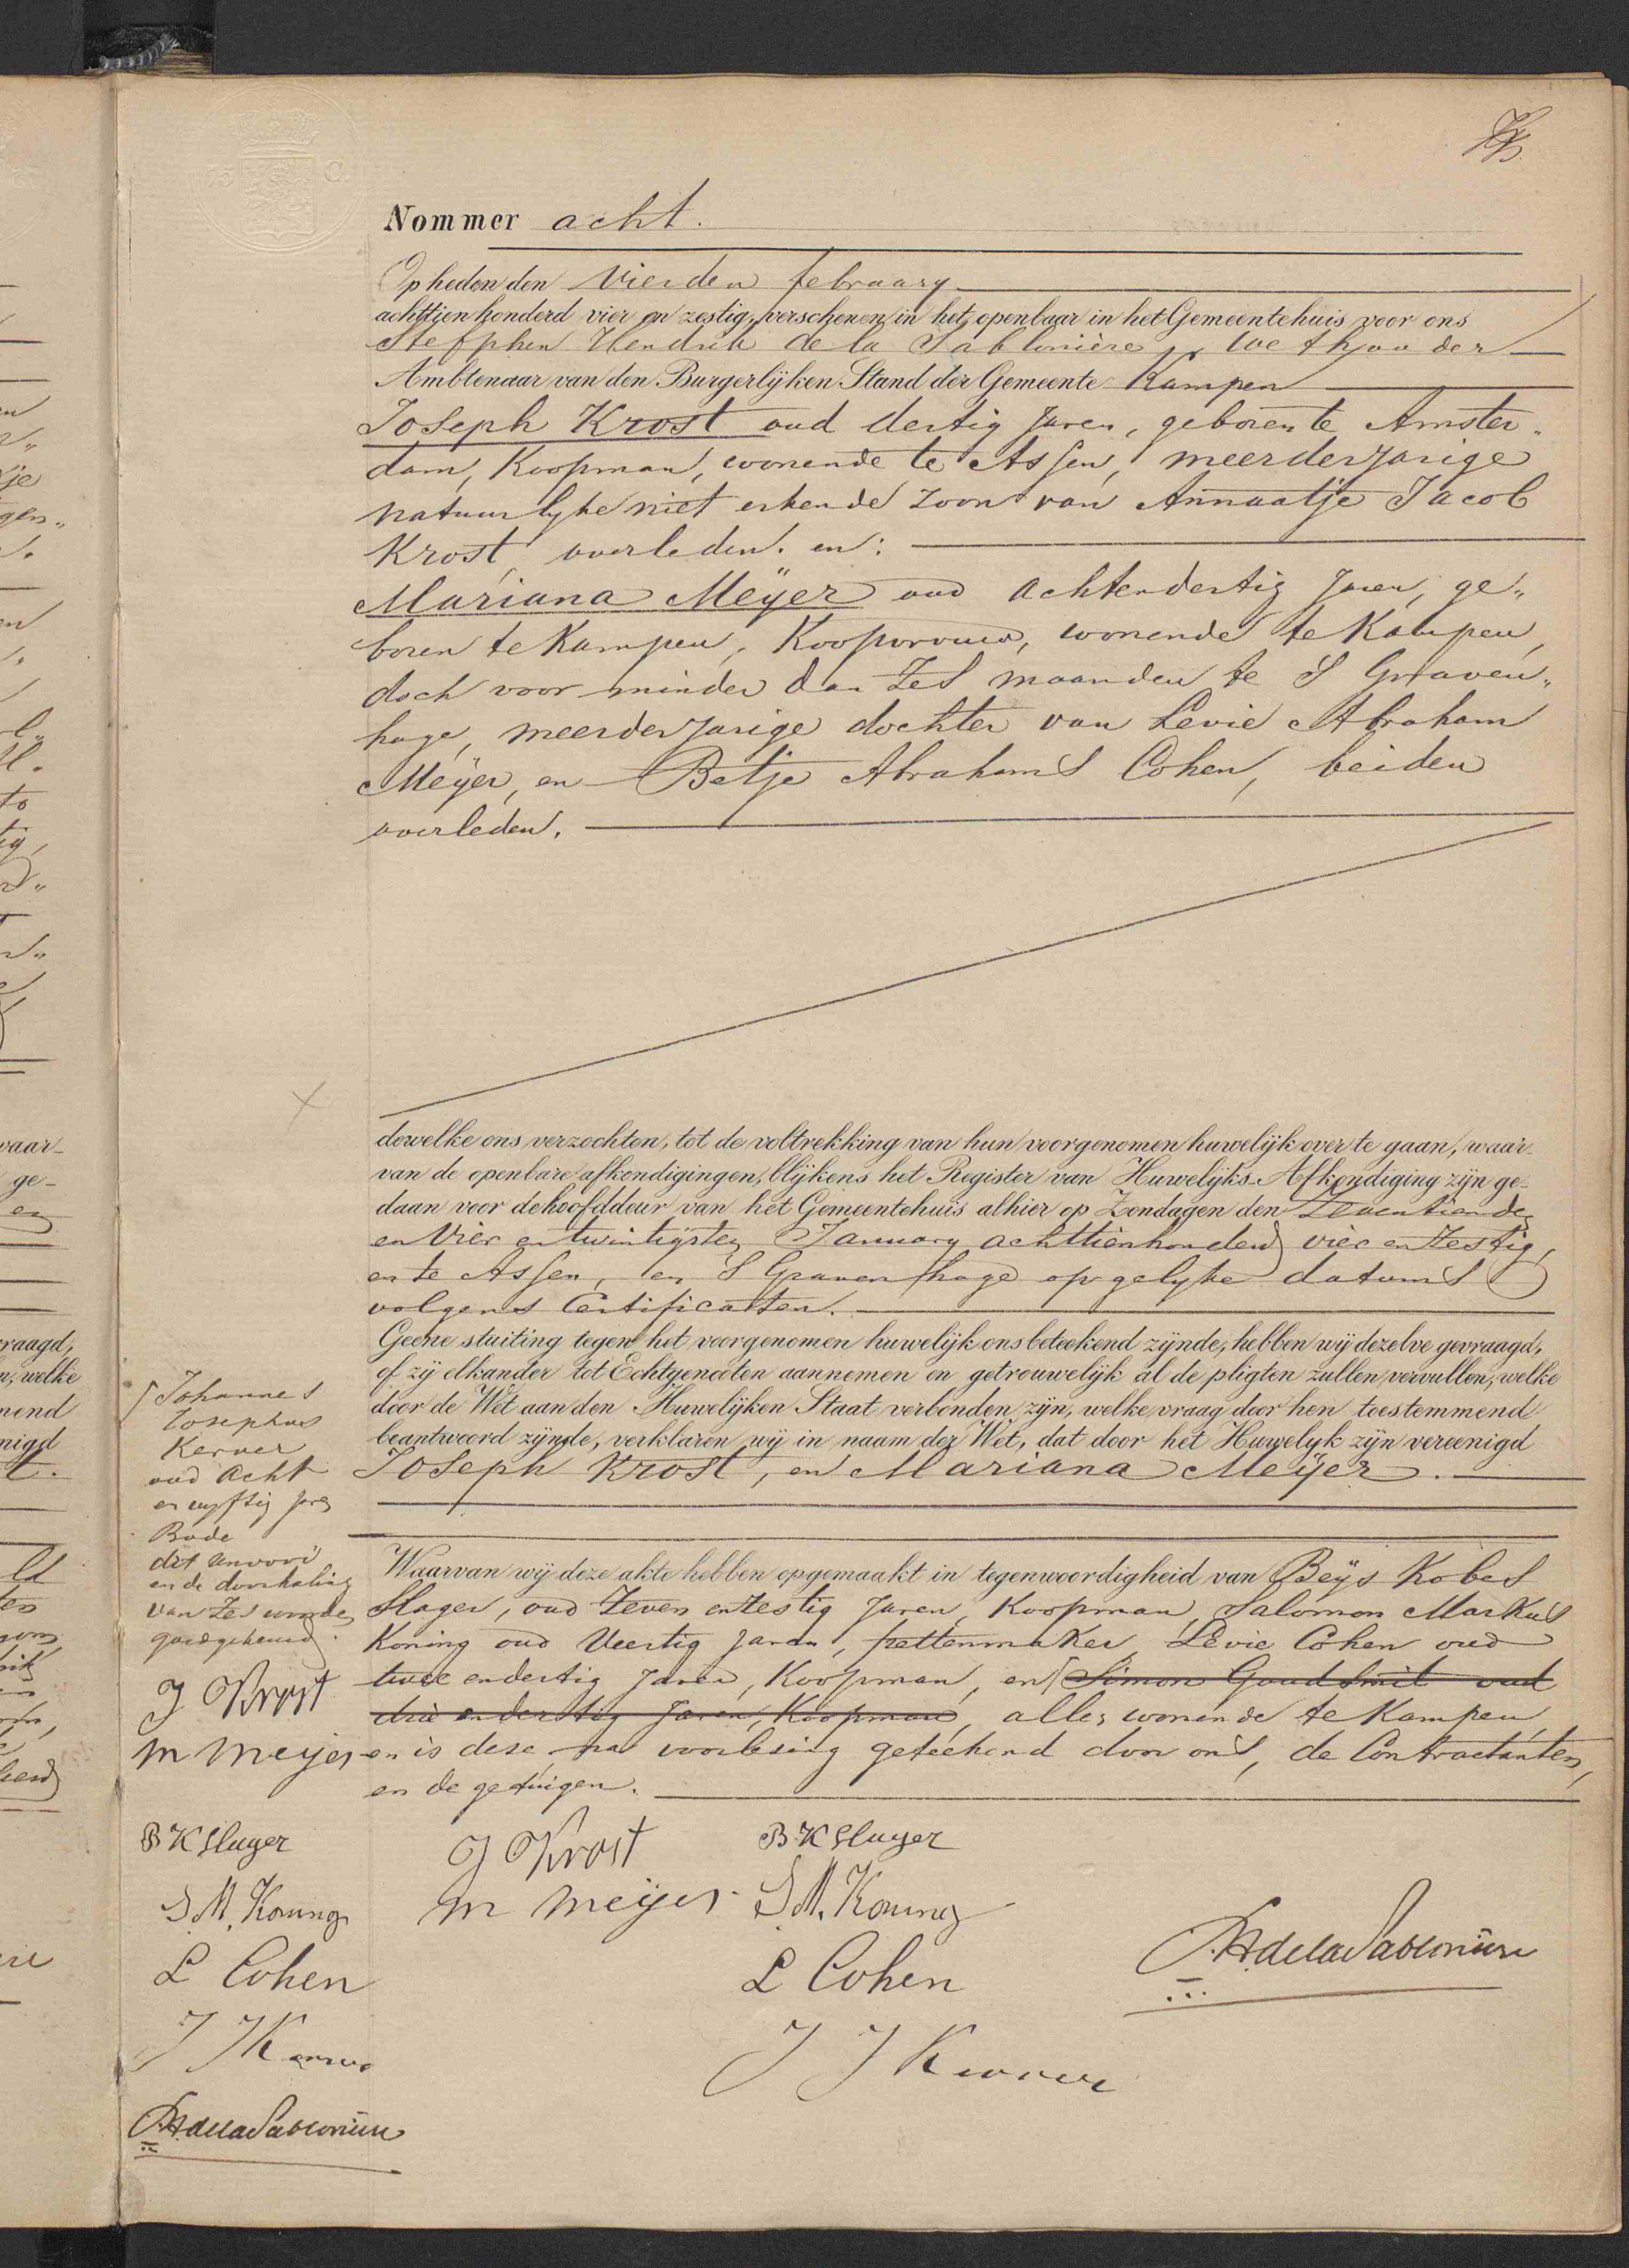 Nommer acht.
Op heden den vierden february
achttien honderd vier en zestig, verschenen in het openbaar in het Gemeentehuis voor ons
Stephen Hendrik de la Sablonière, Wethouder
Ambtenaar van den Burgerlijken Stand der Gemeente Kampen
Joseph Krost oud dertig Jaren, geboren te Amster„
dam, Koopman, wonende te Assen, meerderjarige
natuurlyke niet erkende zoon van Annaatje Jacob
Krost overleden. en:
Mariana Meÿer oud achtendertig Jaren, ge„
boren te Kampen, Koopvrouw, wonende te Kampen,
doch voor minder dan Zes maanden te S Graven„
hage, meerderjarige dochter van Levie Abraham
Meÿer, en Betje Abrahams Cohen, beiden
overleden.
dewelke ons verzochten, tot de voltrekking van hun voorgenomen huwelijk over te gaan, waar-
van de openbare afkondigingen, blijkens het Register van Huwelijks-Afkondiging zijn ge-
daan voor de hoofddeur van het Gemeentehuis alhier op Zondagen den Zeventienden
en Vier en twintigsten January achttienhonderd vier en Zestig,
en te Assen, en S Gravenhage op gelyke datums
volgens Certificatten.
Geene stuiting tegen het voorgenomen huwelijk ons beteekend zijnde, hebben wij dezelve gevraagd,
of zij elkander tot Echtgenooten aannemen en getrouwelijk al de pligten zullen vervullen, welke
door de Wet aan den Huwelijken Staat verbonden zijn, welke vraag door hen toestemmend
beantwoord zijnde, verklaren wij in naam der Wet, dat door het Huwelyk zijn vereenigd
Joseph Krost, en Mariana Meÿer.
Waarvan wij deze akte hebben opgemaakt in tegenwoordigheid van Beÿs Kobes
Slager, oud Zeven en Zestig Jaren, Koopman, Salomon Markus
Koning oud Veertig Jaren, pettenmaker, Levie Cohen oud
twee en dertig Jaren, Koopman, en Simon Goudsmit oud
drie en dertig Jaren, Koopman, allen wonende te Kampen,
en is deze na voorlesing geteekend door ons, de Contractanten,
en de getuigen.
Johannes
Josephus
Kerver
oud Acht
en vyftig Jaren
Bode
dit renvooi
en de doorhaling
van Zes woorden
goedgekeurd.
J Krost
M Meijer
B K Slager
S M. Koning
L Cohen
J J Kerver
S H de la Sablonière
J Krost
M Meijer
B K Slager
S M. Koning
L Cohen
J J Kerver
S H de la Sablonière